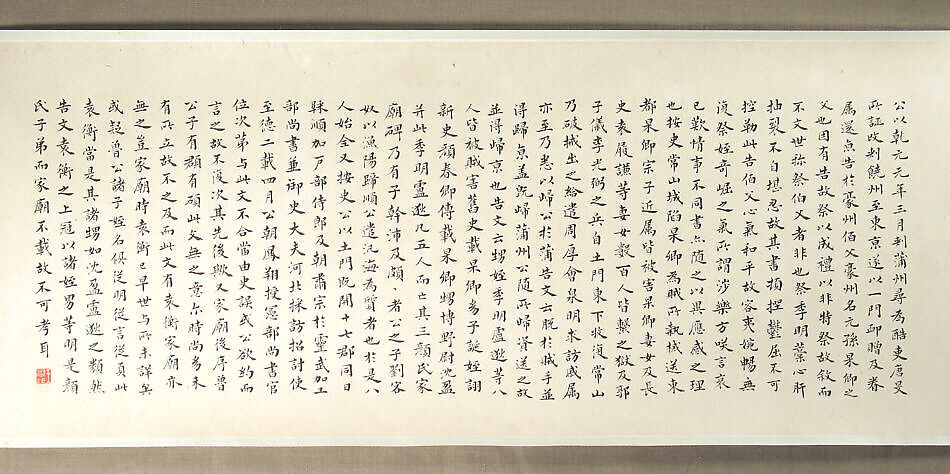 公以乾元元年三月刺蒲州尋為酷吏唐旻
所誣改刺饒州至東京遂以一門卹贈及眷
属還京告於豪州伯父豪州名元孫杲卿之
父也因有告故祭以成禮以非特祭故敘而
不文世称祭伯父者非也祭季明藁心肝
抽裂不自堪忍故其書頓挫鬱屈不可
控勒此告伯父心氣和平故容夷婉暢無
復祭姪奇崛之氣所謂涉樂方咲言哀
已歎情事不同書亦随之以異應感之理
也按史常山城陷杲卿為賊所執械送東
都杲卿宗子近属皆被害杲卿妻女及長
史袁履謙等妻女數百人皆繫之獄及郭
子儀李光弼之兵自土門東下收復常山
乃破械出之給遣周厚會泉明求訪戚属
亦至乃悉以歸公於蒲告文云脱於賊手並
得歸京盖既歸蒲州公随所歸資送之故
並得歸京也告文云甥姪季明盧逖等八
人皆被賊害舊史載杲卿㓜子誕姪詡
新史顏春卿傳載杲卿甥博野尉沈盈
并此季明盧逖凡五人而亡其三顏氏家
廟碑乃有子幹沛及頗頗者公之子劉客
奴以漁陽歸順公遣汎海為質者也於是八
人始全又按史公以土門既開十七郡同日
歸順加戸部侍郎及朝肅宗於靈武加工
部尚書並御史大夫河北採訪招討使
至德二載四月公朝鳳翔授憲部尚書官
位次第与此文不合當由史誤或公欲約而
言之故不復次其先後歟又家廟後序曽
公子有頵有碩此文無之意尔時尚多未
有所立故不之及而此文有袁衡家廟亦
無之豈家廟時袁衡已早世与所未詳矣
或疑曽公諸子姪名俱従明従言従頁此
袁衡當是其諸甥如沈盈盧逖之類然
告文袁衡之上冠以諸姪男等明是顏
氏子弟而家廟不載故不可考耳